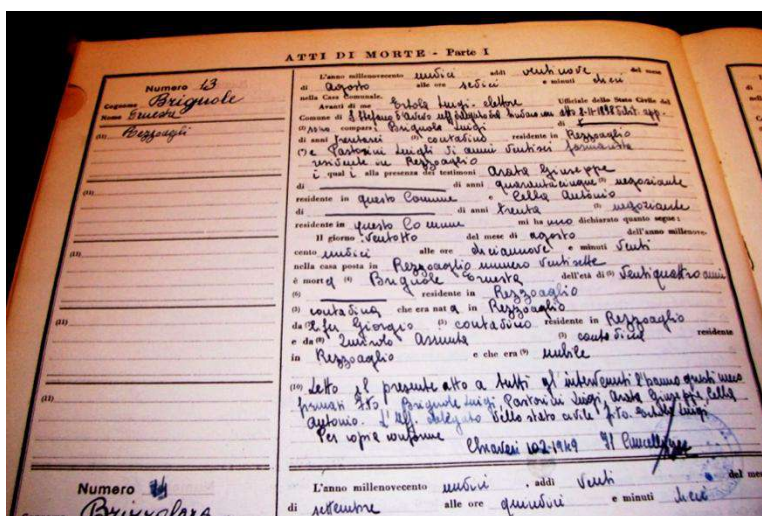 ATTI DI MORTE - Parte I
Numero 13
Cognome Brignole
Nome Ernesta
(11) Rezzoaglio
(11)
(11)
(11)
(11)
(11)
L'anno millenovecento undici addì ventinove del mese
di Agosto alle ore sedici e minuti dieci
nella Casa Comunale.
Avanti di me Ertola Luigi elettore Ufficiale dello Stato Civile del
Comune di S. Stefano d'Aveto uff. delegato dal sindaco con atto
(1) sono comparsi Brignole Luigi di
di anni trentasei (2) contadino residente in Rezzoaglio
(3) e Pastorini Luigi di anni ventisei
residente in Rezzoaglio
i quali alla presenza dei testimoni Arata Giuseppe
di anni quarantacinque (3) negoziante
residente in questo Comune e Cella Antonio
di di anni trenta (3) negoziante
residente in questo Comune mi hanno dichiarato quanto segue:
Il giorno ventotto del mese di agosto dell'anno millenove-
cento undici alle ore diciannove e minuti venti
nella casa posta in Rezzoaglio numero ventisette
è morta (4) Brignole Ernesta dell'età di (5) ventiquattro anni
(6) residente in Rezzoaglio
(3) contadina che era nata in Rezzoaglio
da fu Giorgio (3) contadino residente in Rezzoaglio
e da (8) Assunta (3) contadina residente
in Rezzoaglio e che era (9) nubile
(10) Letto il presente atto a tutti gl'intervenuti l'hanno questi meco
firmati Fto Brignole Luigi, Pastorini Luigi, Arata Giuseppe, Cella
Antonio. L'Uff. delegato dello stato civile f.to Ertola Luigi
Per copia conforme Chiavari 10-2-1949 Il Cancelliere
Numero 14
Brizzolara
L'anno millenovecento undici addì venti del mese
di settembre alle ore quindici e minuti dieci